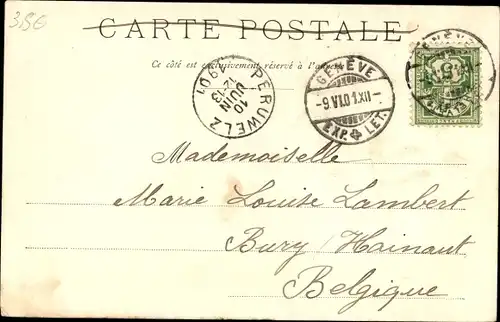 3.50
CARTE POSTALE
Ce côté est exclusivement réservé à l'adresse
PERUWELZ
10
JUIN
12-13
1901
GENÈVE
-9.VI.01.XII-
EXP. LET.
GENÈVE
Mademoiselle
Marie Louise Lambert
Bury Hainaut
Belgique